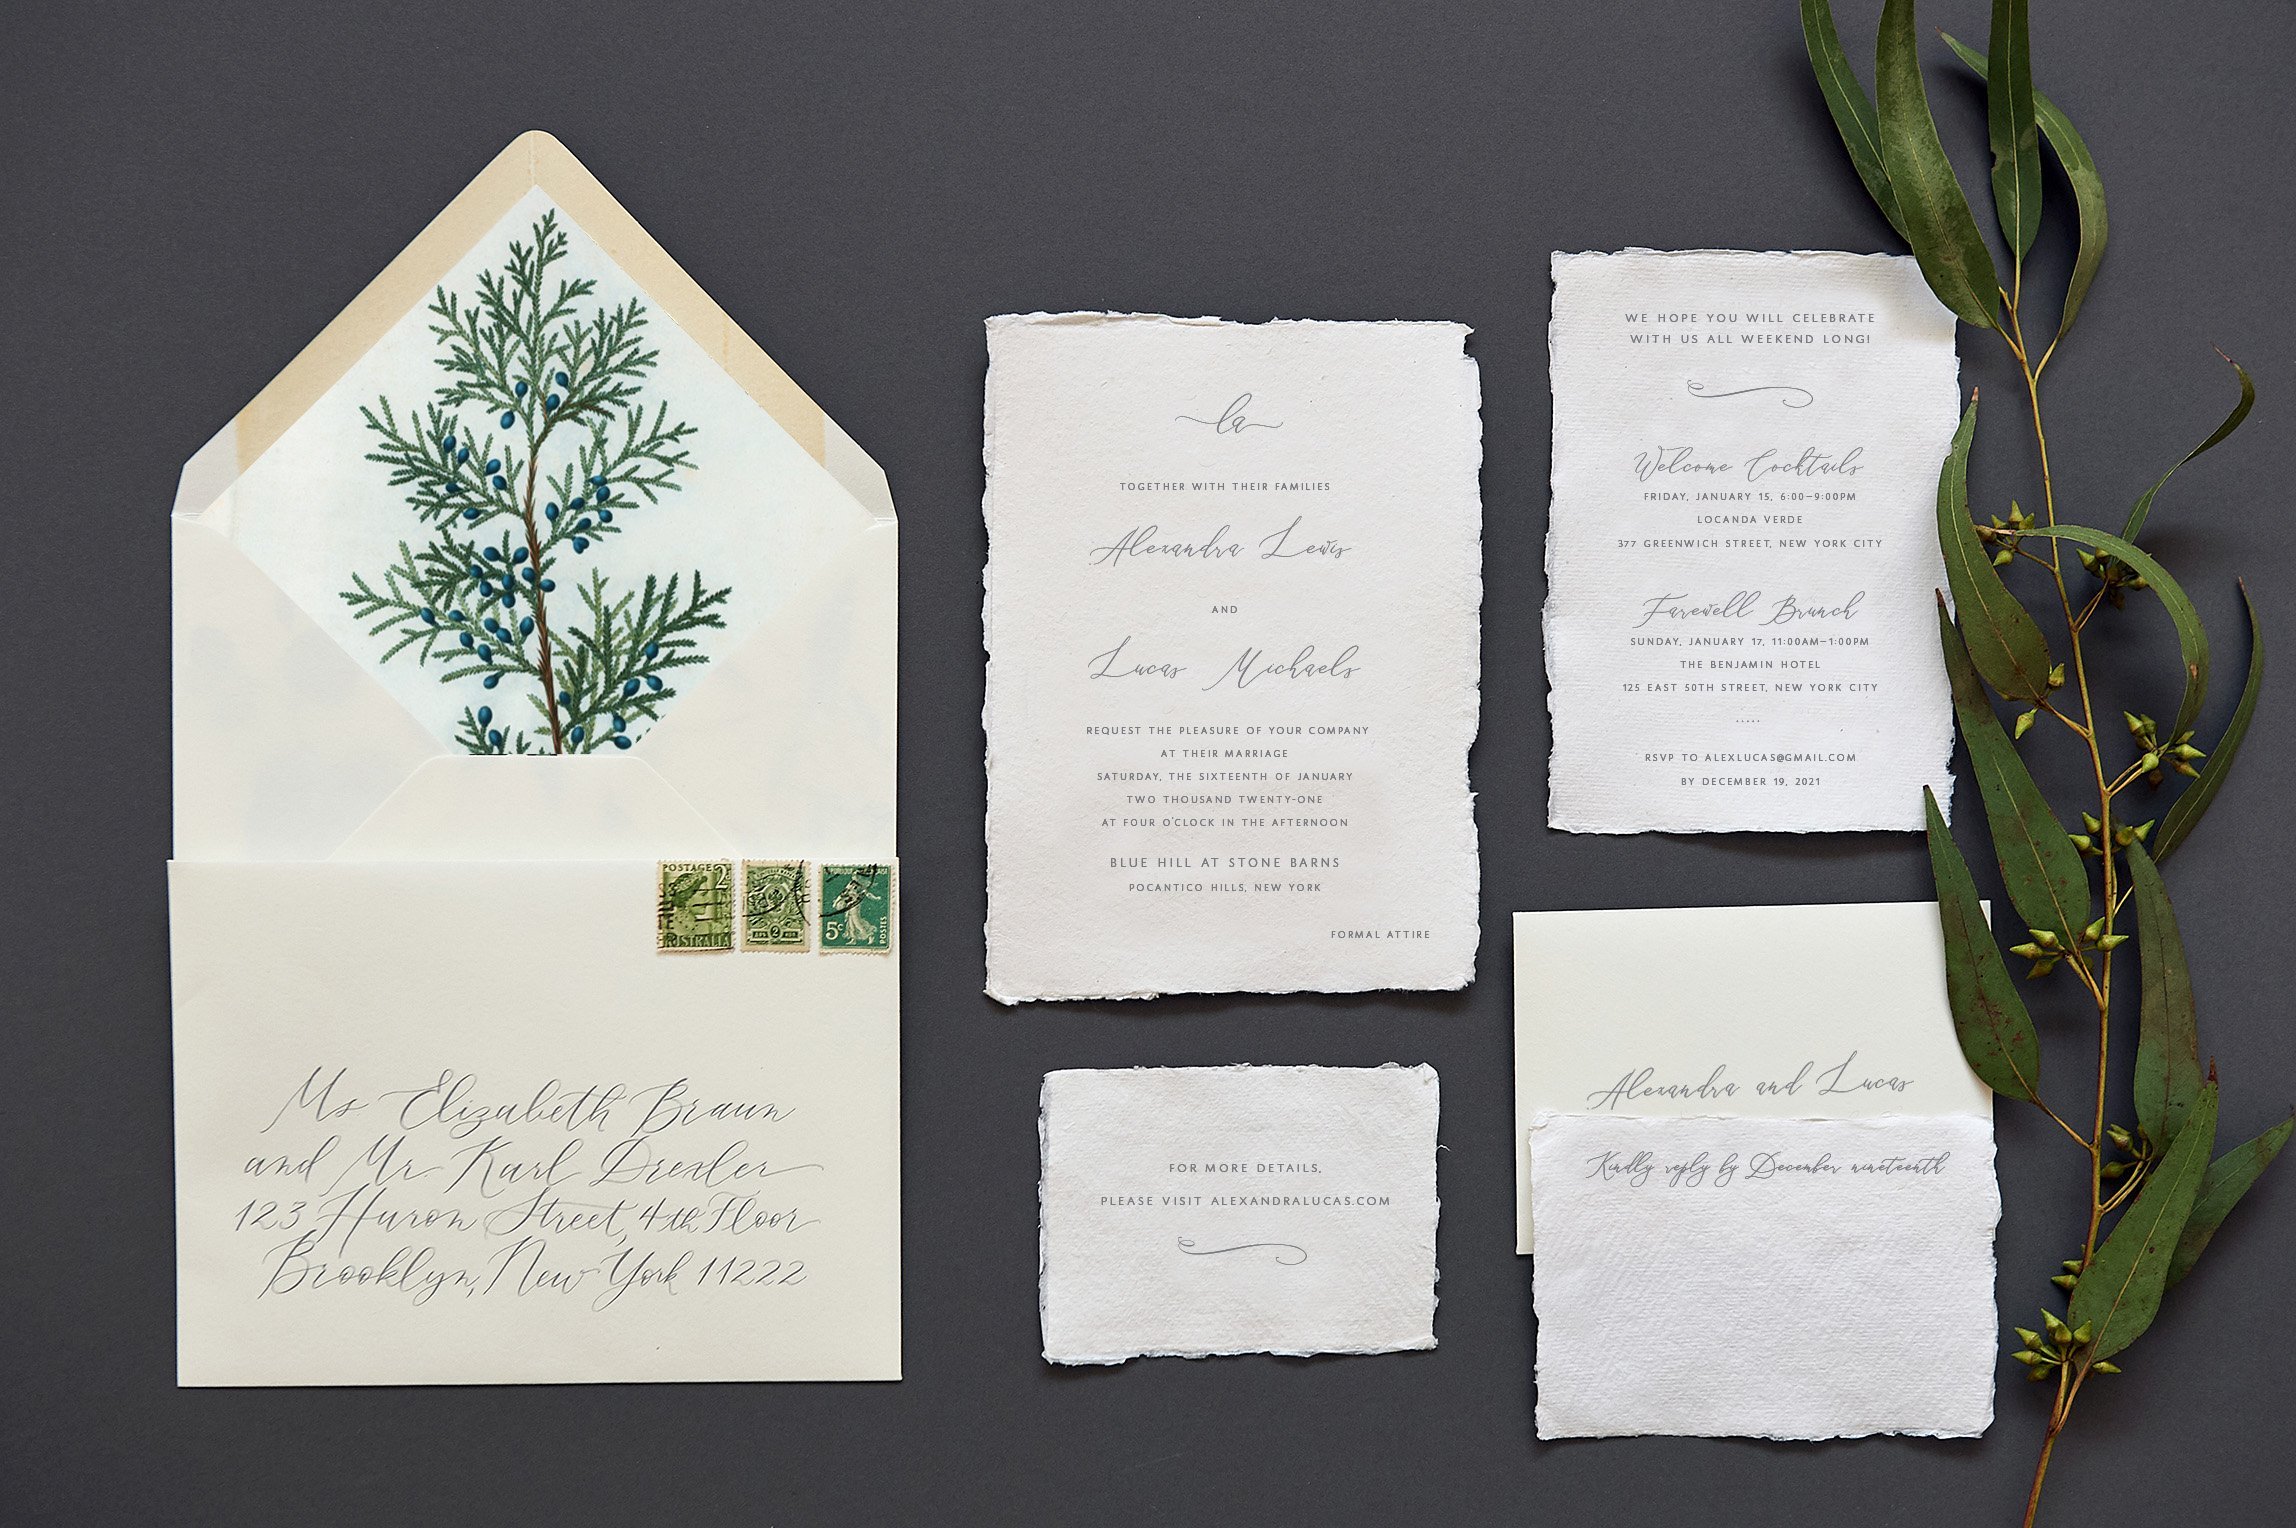 POSTAGE 2
AUSTRALIA
2
5c
POSTES
Ms. Elizabeth Braun
and Mr. Karl Drexler
123 Huron Street, 4th Floor
Brooklyn, New York 11222
la
TOGETHER WITH THEIR FAMILIES
Alexandra Lewis
AND
Lucas Michaels
REQUEST THE PLEASURE OF YOUR COMPANY
AT THEIR MARRIAGE
SATURDAY, THE SIXTEENTH OF JANUARY
TWO THOUSAND TWENTY-ONE
AT FOUR O'CLOCK IN THE AFTERNOON
BLUE HILL AT STONE BARNS
POCANTICO HILLS, NEW YORK
FORMAL ATTIRE
FOR MORE DETAILS,
PLEASE VISIT ALEXANDRALUCAS.COM
WE HOPE YOU WILL CELEBRATE
WITH US ALL WEEKEND LONG!
Welcome Cocktails
FRIDAY, JANUARY 15, 6:00–9:00PM
LOCANDA VERDE
377 GREENWICH STREET, NEW YORK CITY
Farewell Brunch
SUNDAY, JANUARY 17, 11:00AM–1:00PM
THE BENJAMIN HOTEL
125 EAST 50TH STREET, NEW YORK CITY
.....
RSVP TO ALEXLUCAS@GMAIL.COM
BY DECEMBER 19, 2021
Alexandra and Lucas
Kindly reply by December nineteenth